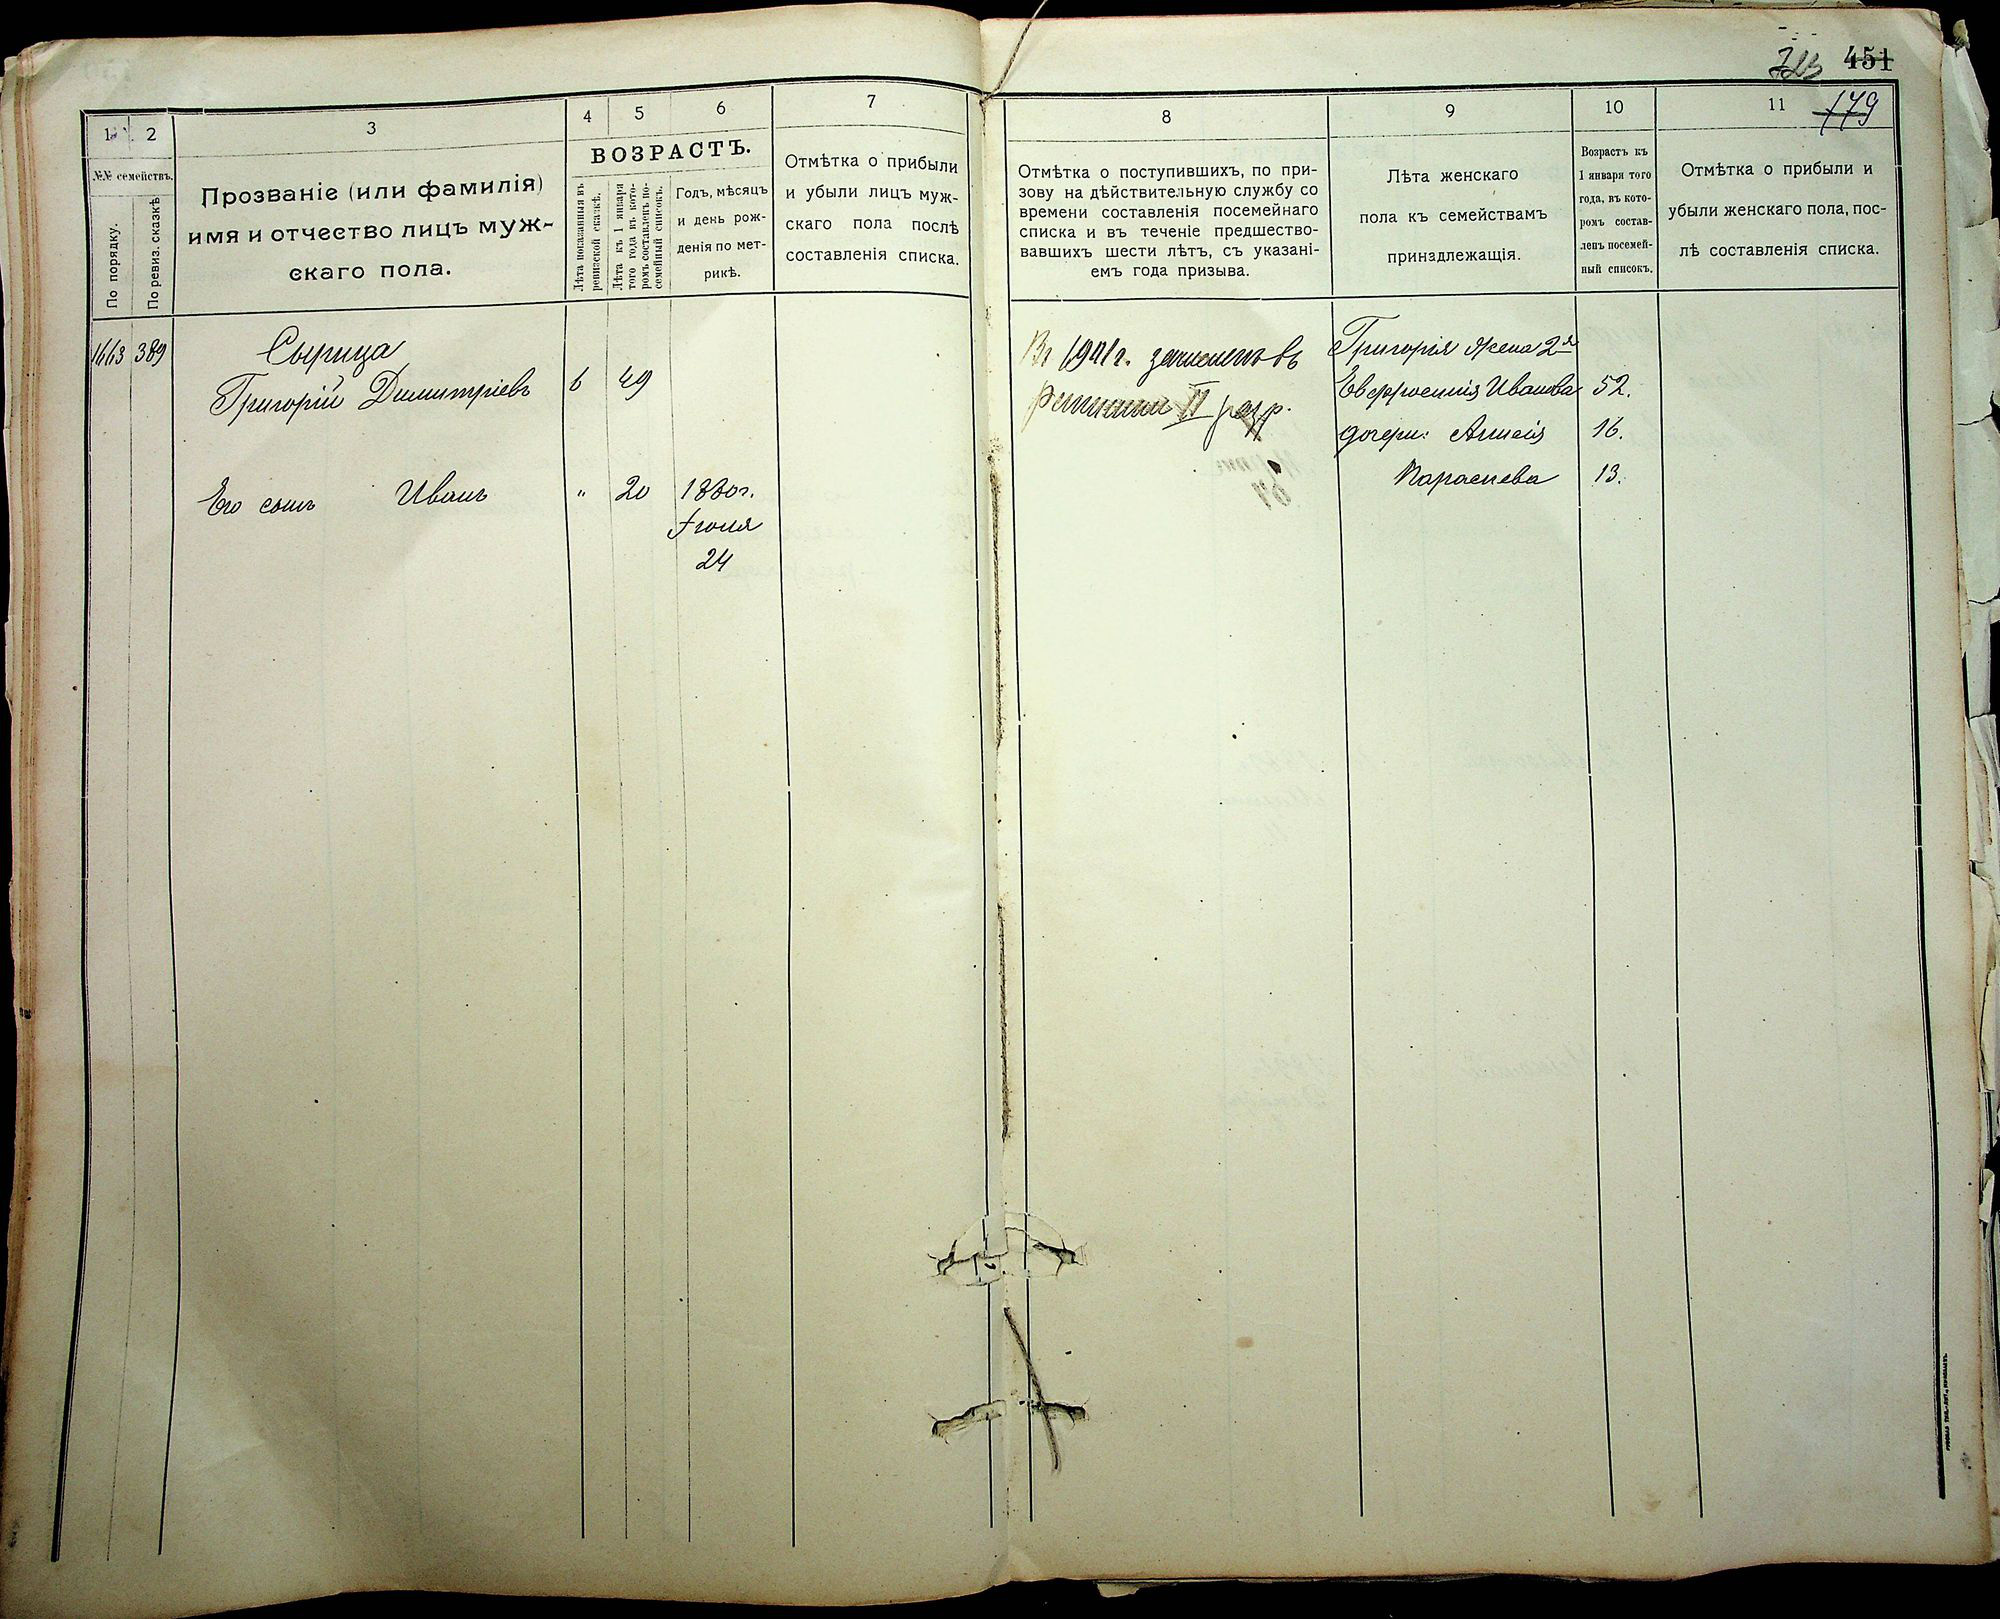 451
179
1 2 3 4 5 6 7 8 9 10 11
№№ семействъ.
По порядку.
По ревиз. сказкѣ
Прозваніе (или фамилія)
имя и отчество лицъ муж-
скаго пола.
ВОЗРАСТЪ.
Лѣта показанныя въ
ревизской сказкѣ.
Лѣта къ 1 января
того года въ кото-
ромъ составленъ по-
семейный списокъ.
Годъ, мѣсяцъ
и день рож-
денія по мет-
рикѣ.
Отмѣтка о прибыли
и убыли лицъ муж-
скаго пола послѣ
составленія списка.
Отмѣтка о поступившихъ, по при-
зову на дѣйствительную службу со
времени составленія посемейнаго
списка и въ теченіе предшество-
вавшихъ шести лѣтъ, съ указані-
емъ года призыва.
Лѣта женскаго
пола къ семействамъ
принадлежащія.
Возрастъ къ
1 января того
года, въ кото-
ромъ состав-
ленъ посемей-
ный списокъ.
Отмѣтка о прибыли и
убыли женскаго пола, пос-
лѣ составленія списка.
1663 389 Сырица
Григорій Димитріевъ 6 49
Его сынъ Иванъ " 20 1880г.
Іюня
24
Въ 1901г. зачисленъ въ
ратники II разр.
Григорія жена 2я
Евфросинія Иванова 52.
дочери: Анисія 16.
Параскева 13.